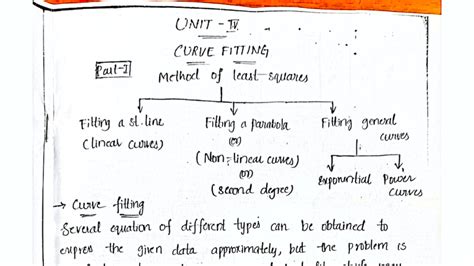 UNIT - IV
CURVE FITTING
Part-I
Method of least squares
Fitting a st.line
(linear curves)
Fitting a parabola
(or)
(Non-linear curves)
(or)
(second degree)
Fitting general
curves
Exponential
Power
curves
→ Curve fitting
Several equation of different types can be obtained to
express the given data approximately, but the problem is